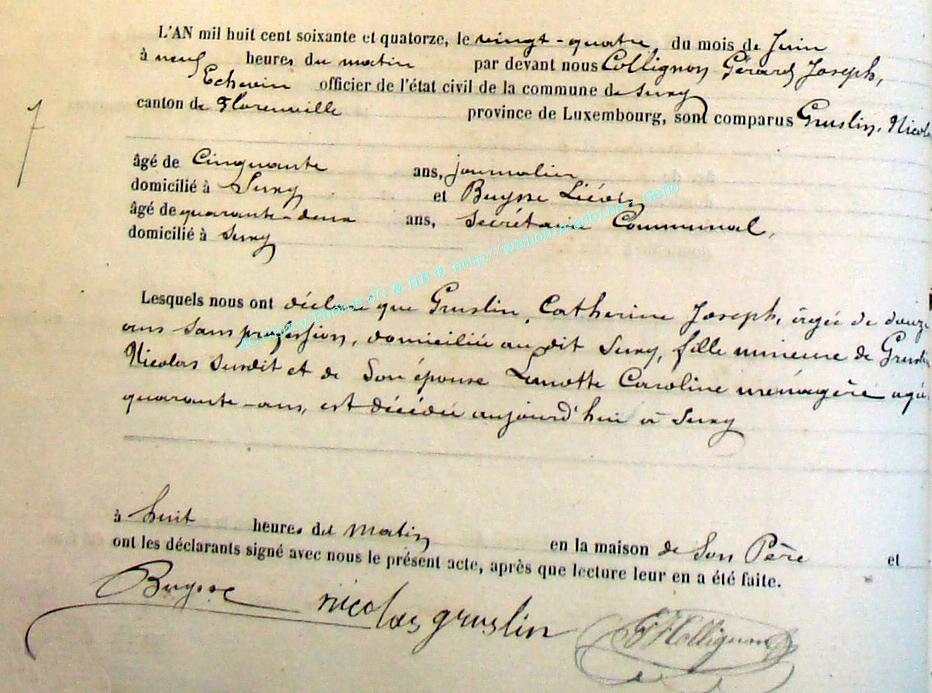 L'AN mil huit cent soixante et quatorze, le vingt-quatre du mois de Juin
à neuf heures du matin par devant nous Collignon Gérard Joseph,
Echevin officier de l'état civil de la commune de Suxy
canton de Florenville province de Luxembourg, sont comparus Gruslin, Nicolas
7
âgé de Cinquante ans, journalier
domicilié à Suxy et Buysse Liévin
âgé de quarante-deux ans, Secrétaire Communal,
domicilié à Suxy
Lesquels nous ont déclaré que Gruslin, Catherine Joseph, âgée de douze
ans sans profession, domiciliée au dit Suxy, fille mineure de Gruslin
Nicolas susdit et de Son épouse Lanotte Caroline ménagère agée
quarante-ans, est décédée aujourd'hui à Suxy
à huit heures du matin en la maison de Son Père et
ont les déclarants signé avec nous le présent acte, après que lecture leur en a été faite.
Buysse nicolas gruslin G J Collignon